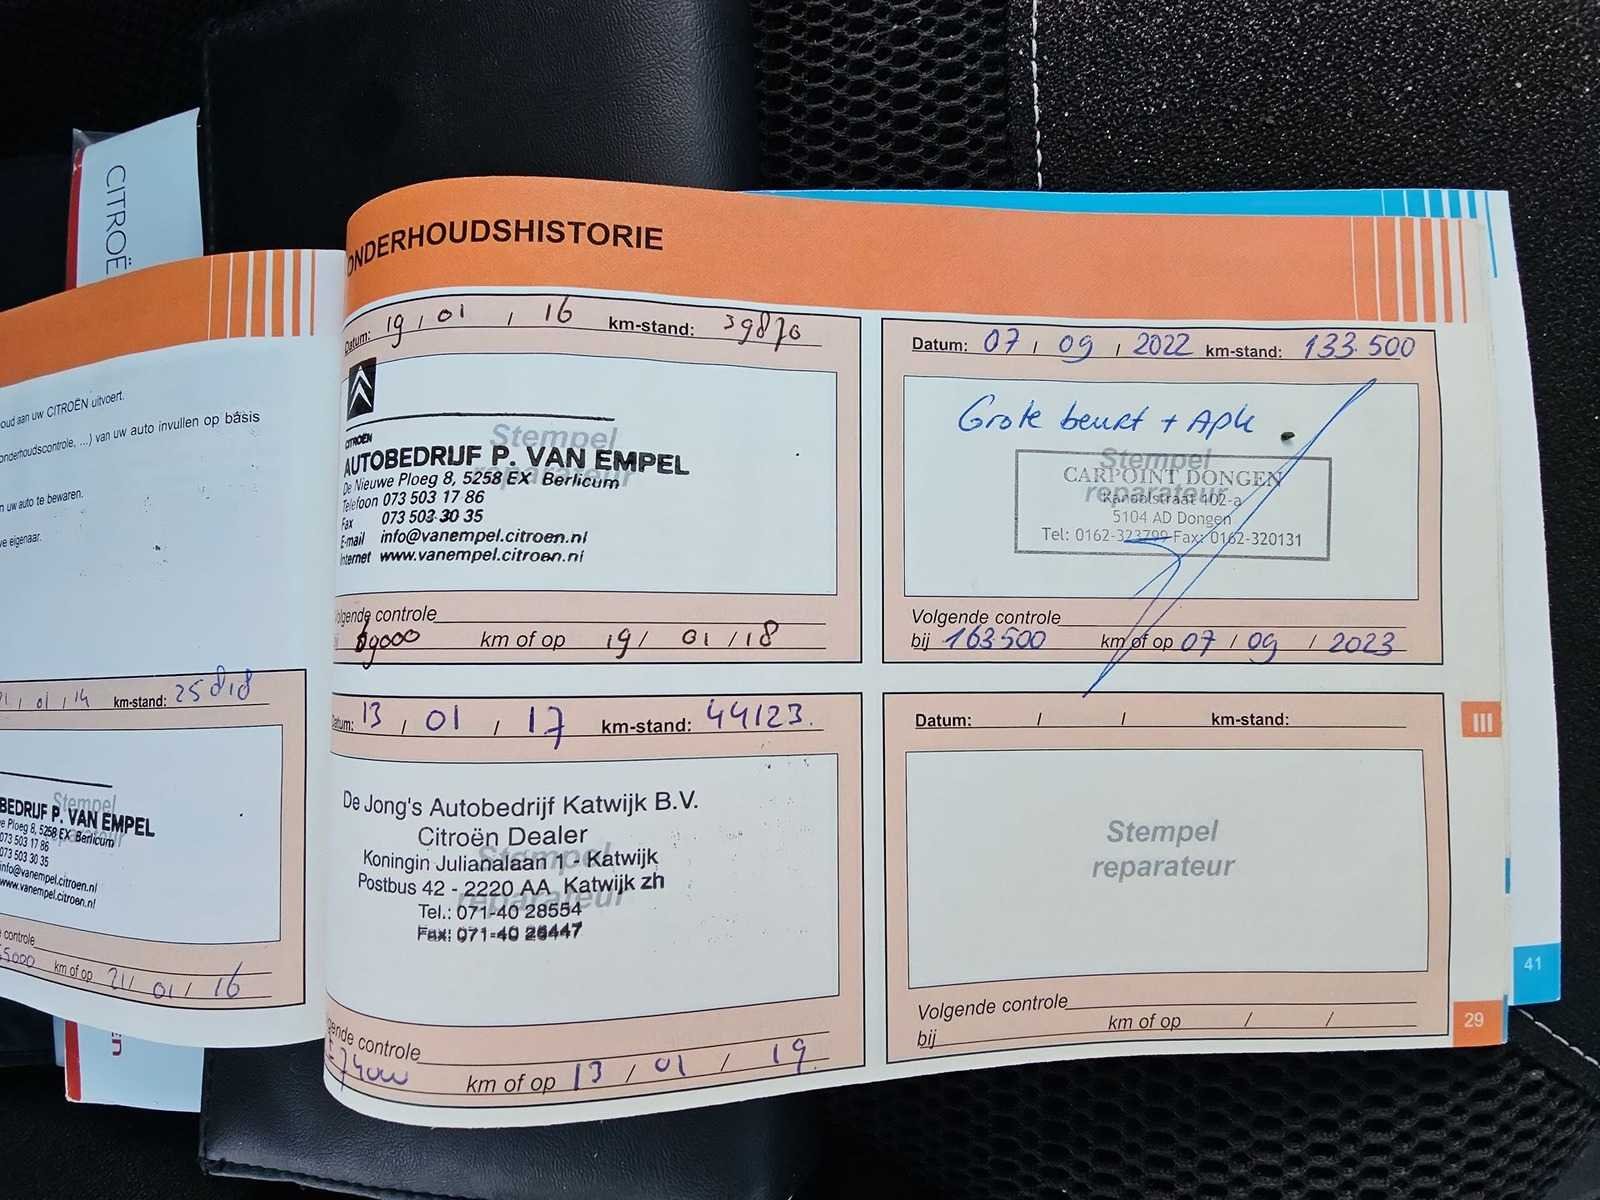 CITROË
oud aan uw CITROËN uitvoert.
onderhoudscontrole, ...) van uw auto invullen op basis
n uw auto te bewaren.
ve eigenaar.
01 / 14 km-stand: 25818
Stempel
BEDRIJF P. VAN EMPEL
e Ploeg 8, 5258 EX Berlicum
073 503 17 86
073 503 30 35
info@vanempel.citroen.nl
www.vanempel.citroen.nl
controle
km of op 21/ 01 / 16
ONDERHOUDSHISTORIE
Datum: 19 / 01 / 16 km-stand: 39870
CITROËN
Stempel
reparateur
AUTOBEDRIJF P. VAN EMPEL
De Nieuwe Ploeg 8, 5258 EX Berlicum
Telefoon 073 503 17 86
Fax 073 503 30 35
E-mail info@vanempel.citroen.nl
Internet www.vanempel.citroen.nl
Volgende controle
69000 km of op 19 / 01 / 18
Datum: 13 / 01 / 17 km-stand: 44123.
Stempel
reparateur
De Jong's Autobedrijf Katwijk B.V.
Citroën Dealer
Koningin Julianalaan 1 - Katwijk
Postbus 42 - 2220 AA Katwijk zh
Tel.: 071-40 28554
Fax: 071-40 26447
gende controle
74000 km of op 13 / 01 / 19
Datum: 07 / 09 / 2022 km-stand: 133.500
Grote beurt + Apk
Stempel
reparateur
CARPOINT DONGEN
Kanaalstraat 102-a
5104 AD Dongen
Tel: 0162-323799 Fax: 0162-320131
Volgende controle
bij 163500 km of op 07 / 09 / 2023
Datum: / / km-stand:
Stempel
reparateur
Volgende controle
bij km of op / /
III
29
41